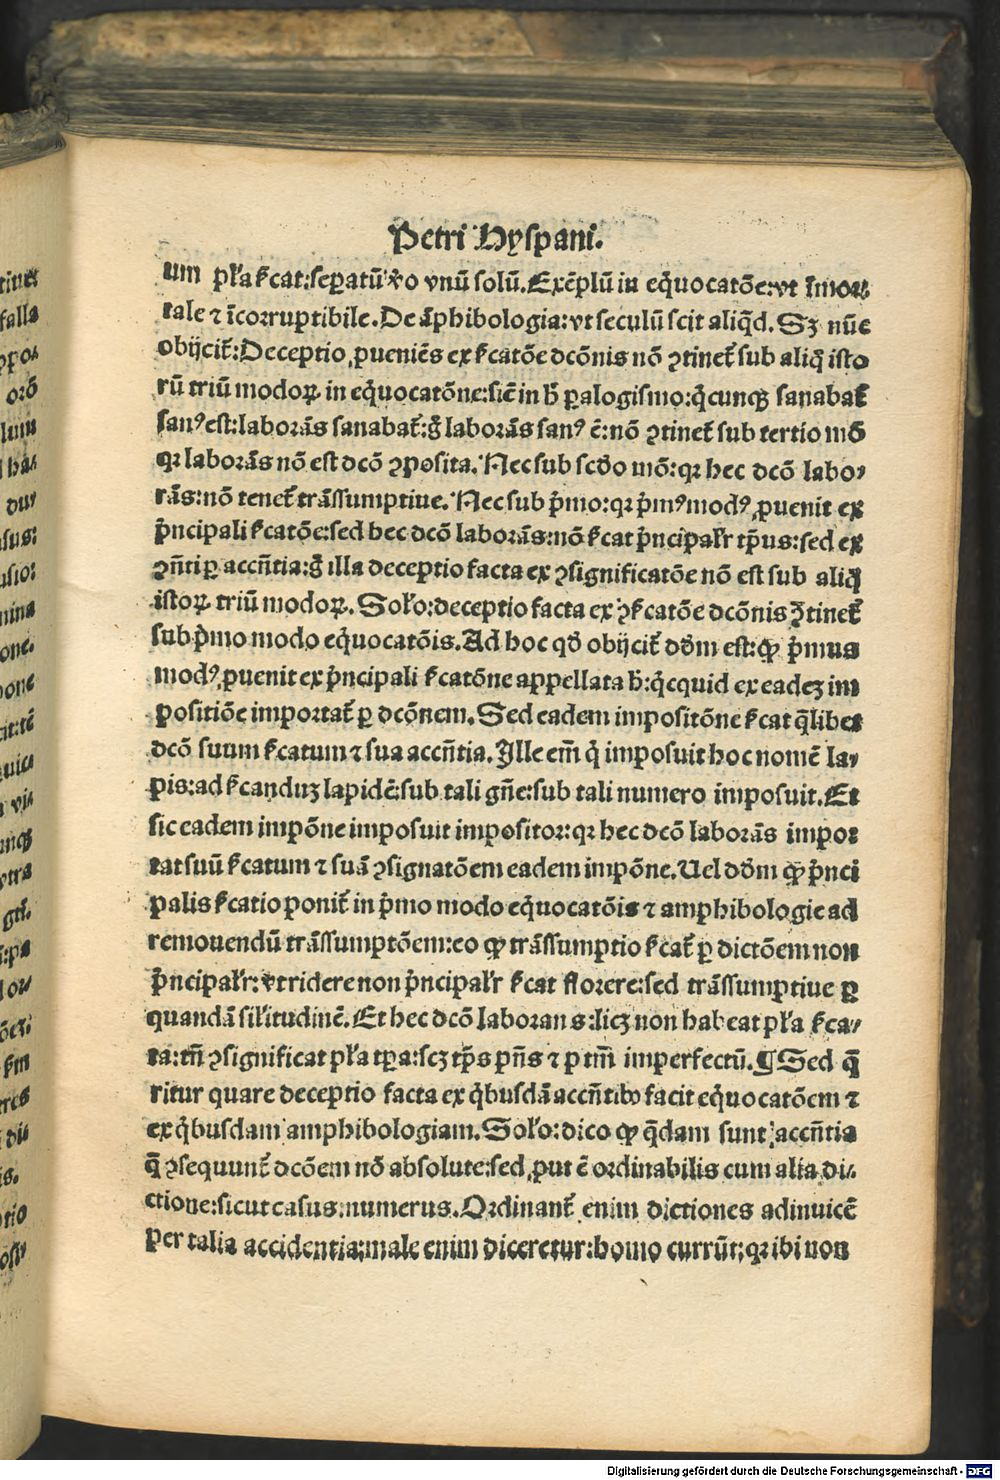 Petri Hyspani.
um pl̄a ſ̄cat:ſeꝑatū v̄o vnū ſolū.Exēplū in eq̄uocatōe:vt īmor⸗
tale ⁊ īcorruptibile.De āphibologia:vt ſeculū ſcit aliq̄d. Sꝫ nūc
obijcit̄:Deceptio ꝓueniēs ex ſ̄catōe dcōnis nō ꝯtinet̄ ſub aliq̄ iſto
rū triū modoꝝ in eq̄uocatōne:ſic̄ in h̄ ꝑalogiſmo:q̄cunqꝫ ſanabat̄
ſanꝰ eſt:laborās ſanabat̄:g̊ laborās ſanꝰ ē:nō ꝯtinet̄ ſub tertio mō
qꝛ laborās nō eſt dcō ꝯpoſita.Nec ſub ſcd̄o mō:qꝛ hec dcō labo⸗
rās:nō tenet̄ trāſſumptiue.Nec ſub p̄mo:qꝛ p̄mꝰ modꝰ ꝓuenit ex
p̄ncipali ſ̄catōe:ſed hec dcō laborās:nō ſ̄cat p̄ncipal̄r tp̄us:ſed ex
ꝯn̄ti ꝑ accn̄tia:g̊ illa deceptio facta ex ꝯſignificatōe nō eſt ſub aliq̄
iſtoꝝ triū modoꝝ.Sol̄o:deceptio facta ex ꝯſ̄catōe dcōnis ꝯtinet̄
ſub p̄mo modo eq̄uocatōis.Ad hoc qd̄ obijcit̄ dd̄m eſt:ꝙ p̄mus
modꝰ ꝓuenit ex p̄ncipali ſ̄catōne appellata h̄:q̄cquid ex eadeꝫ im
poſitiōe importat̄ ꝑ dcōnem.Sed eadem impoſitōne ſ̄cat q̄libet
dcō ſuum ſ̄catum ⁊ ſua accn̄tia.Ille em̄ q̄ impoſuit hoc nomē la⸗
pis:ad ſ̄canduꝫ lapidē:ſub tali gn̄e:ſub tali numero impoſuit.Et
ſic eadem impōne impoſuit impoſitor:qꝛ hec dcō laborās impor
tat ſuū ſ̄catum ⁊ ſuā ꝯſignatōem eadem impōne.Uel dd̄m ꝙ p̄nci
palis ſ̄catio ponit̄ in p̄mo modo eq̄uocatōis ⁊ amphibologie ad
remouendū trāſſumptōem:eo ꝙ trāſſumptio ſ̄cat̄ ꝑ dictōem non
p̄ncipal̄r:vt ridere non p̄ncipal̄r ſ̄cat florere:ſed trāſſumptiue ꝑ
quandā ſil̄itudinē.Et hec dcō laborans:licꝫ non habeat pl̄a ſ̄ca⸗
ta:tn̄ ꝯſignificat pl̄a tꝑa:ſcꝫ tp̄s pn̄s ⁊ p tm̄ imperfectū.¶Sed q̄
ritur quare deceptio facta ex q̄buſdā accn̄tibꝰ facit eq̄uocatōem ⁊
ex q̄buſdam amphibologiam.Sol̄o:dico ꝙ q̄dam ſunt accn̄tia
q̄ ꝯſequunt̄ dcōem nō abſolute:ſed ꝓut ē ordinabilis cum alia di⸗
ctione:ſicut caſus:numerus.Ordinant̄ enim dictiones adinuicē
per talia accidentia:male enim diceretur:homo currūt:qꝛ ibi non
Digitalisierung gefördert durch die Deutsche Forschungsgemeinschaft - DFG